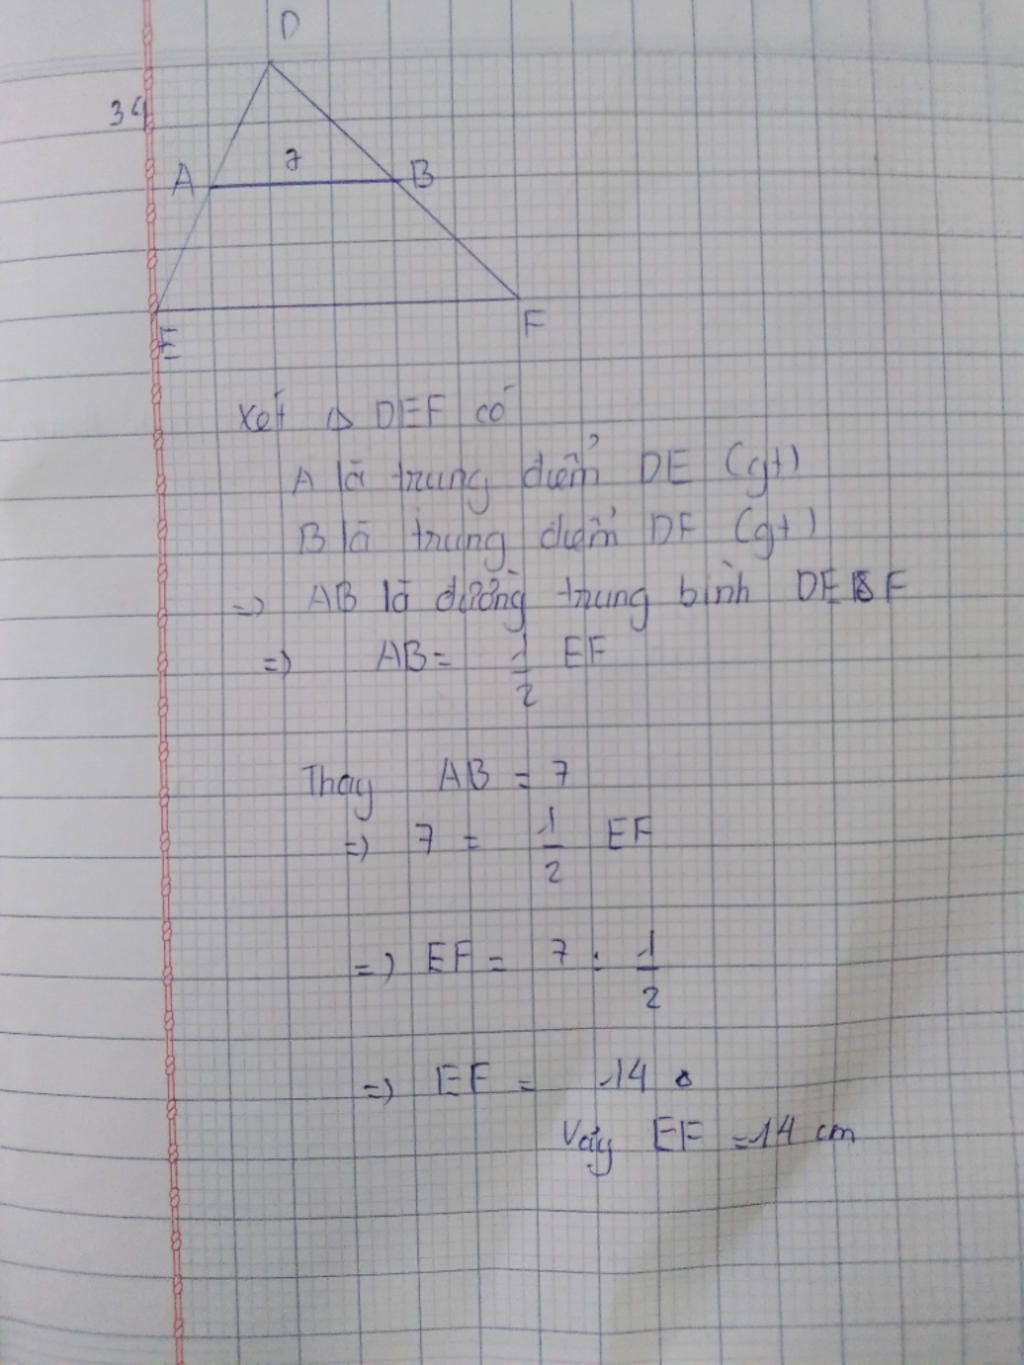 D
34
7
A
B
E
F
Xét △ DEF có
A là trung điểm DE (gt)
B là trung điểm DF (gt)
=> AB là đường trung bình DEF
=> AB = 1/2 EF
Thay AB = 7
=> 7 = 1/2 EF
=> EF = 7 : 1/2
=> EF = 14
Vậy EF = 14 cm